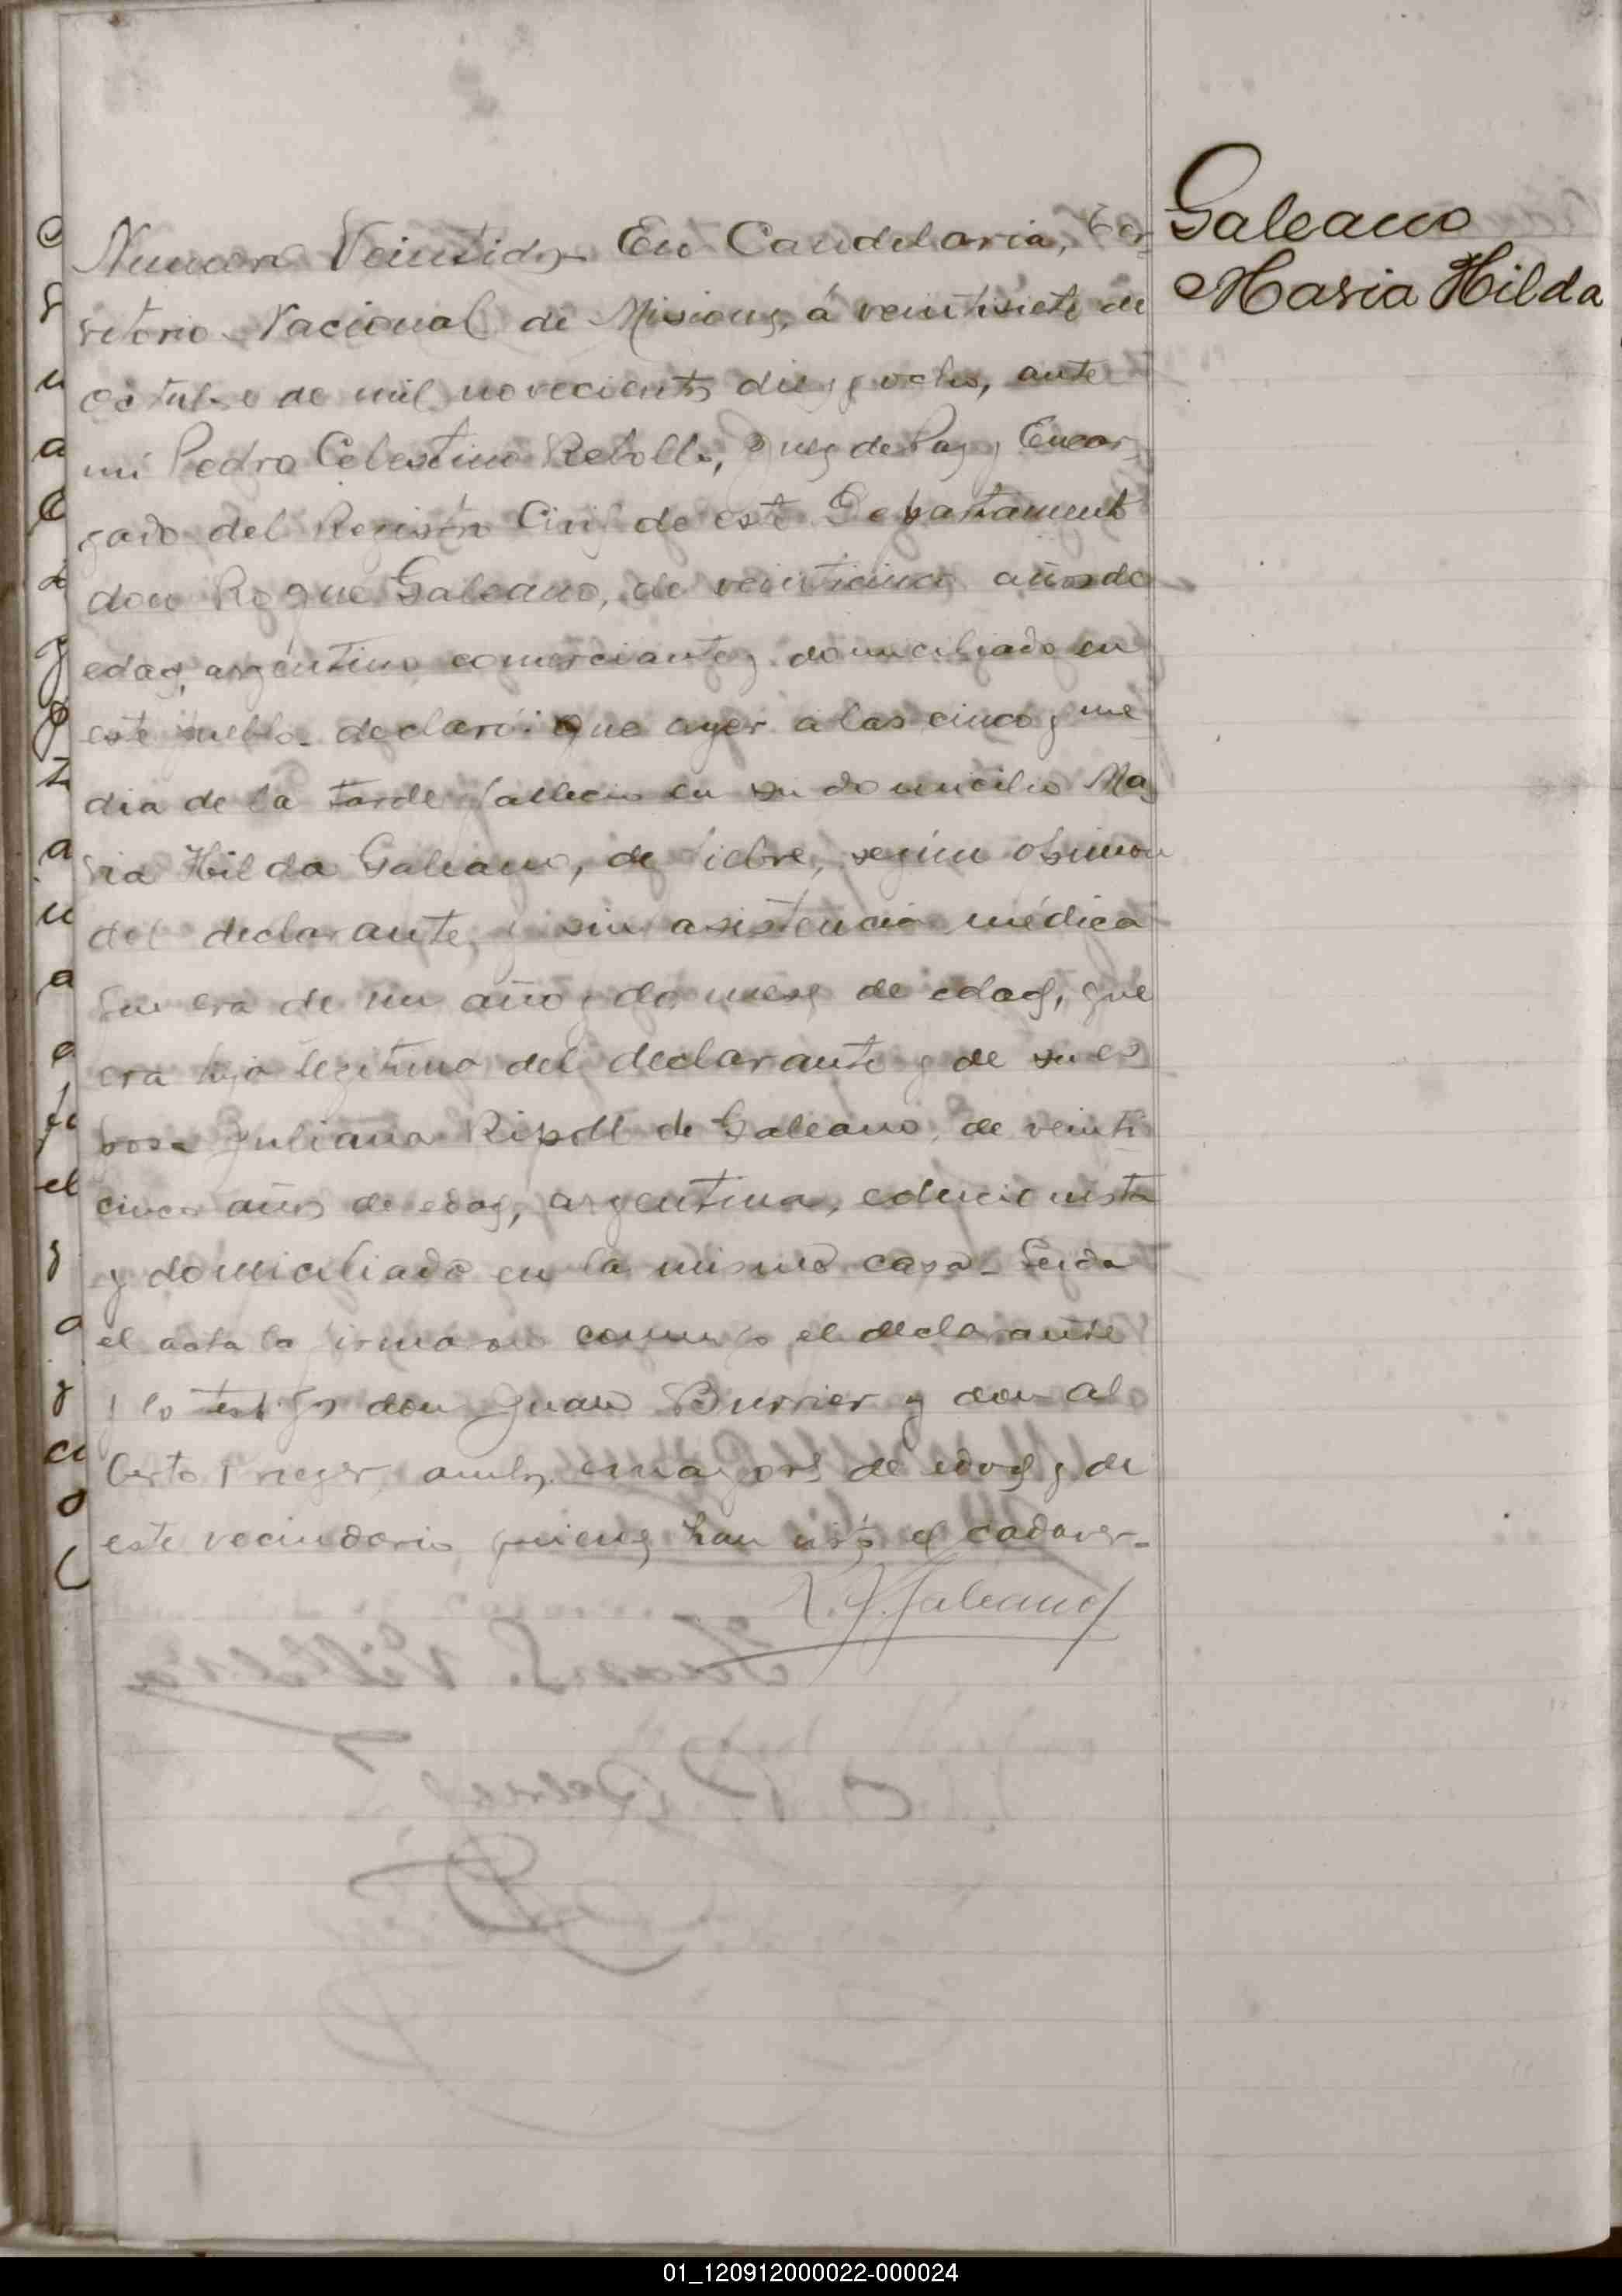 Galeano
Maria Hilda
Numero Veintidos En Candelaria, Ter-
ritorio Nacional de Misiones, á veintisiete de
octubre de mil novecientos diez y ocho, ante
mi Pedro Celestino Rebollo, Juez de Paz y Encar
gado del Registro Civil de este Departamento
don Roque Galeano, de veinticinco años de
edad, argentino comerciante y domiciliado en
este pueblo declaró: Que ayer a las cinco y me
dia de la tarde fallecio en su domicilio Ma
ria Hilda Galeano, de fiebre, según opinion
del declarante, y sin asistencia médica
Que era de un año y dos meses de edad, que
era hija legitima del declarante y de su es
posa Juliana Ripoll de Galeano, de veinti
cinco años de edad, argentina, educionista
y domiciliado en la misma casa - Leida
el acta la firmaron conmigo el declarante
y los testigos don Juan Burrier y don Al
berto ambos mayores de edad y de
este vecindario, quienes han visto el cadaver-
R. J. Galeano
01_120912000022-000024